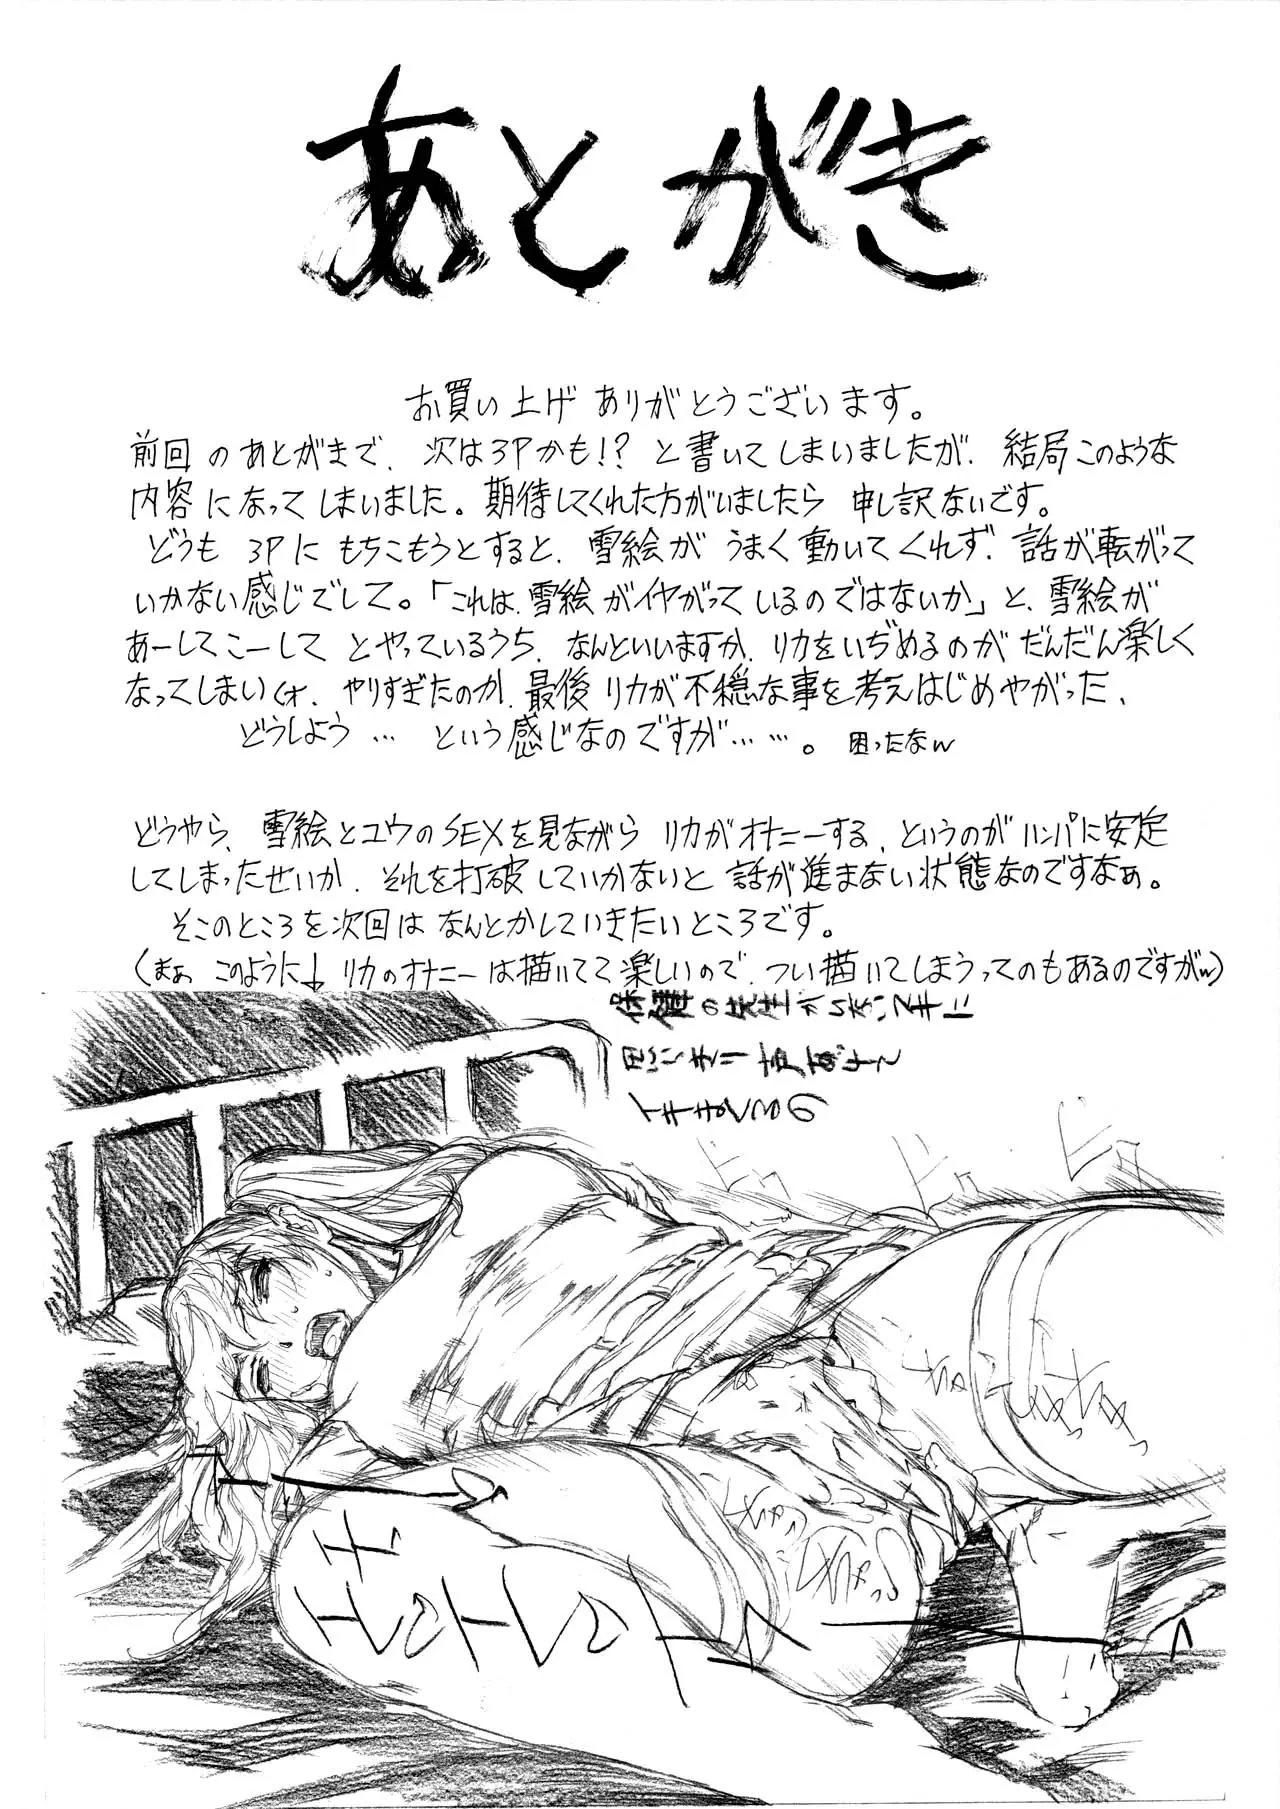 あとがき
お買い上げ ありがとうございます。
前回のあとがきで、次は3Pかも!? と書いてしまいましたが、結局このような
内容になってしまいました。期待してくれた方がいましたら 申し訳ないです。
どうも 3Pに もちこもうとすると、雪絵が うまく動いてくれず、話が転がって
いかない感じでして。「これは、雪絵がイヤがっているのではないか」と、雪絵が
あーしてこーして とやっているうち、なんといいますか、リカをいぢめるのが だんだん楽しく
なってしまい(オ、やりすぎたのか、最後 リカが不穏な事を考えはじめやがった、
どうしよう … という感じなのですが……。困ったなw
どうやら、雪絵とユウのSEXを見ながら リカがオナニーする、というのがハンパに安定
してしまったせいか、それを打破していかないと 話が進まない状態なのですなぁ。
そこのところを次回は なんとかしていきたいところです。
(まぁ このように↓ リカのオナニーは描いてて楽しいので、つい描いてしまうってのもあるのですがw)
保健の先生がいないで
思いきり声あげて
イキまくるの
ビク ビク ビク
ちゅ